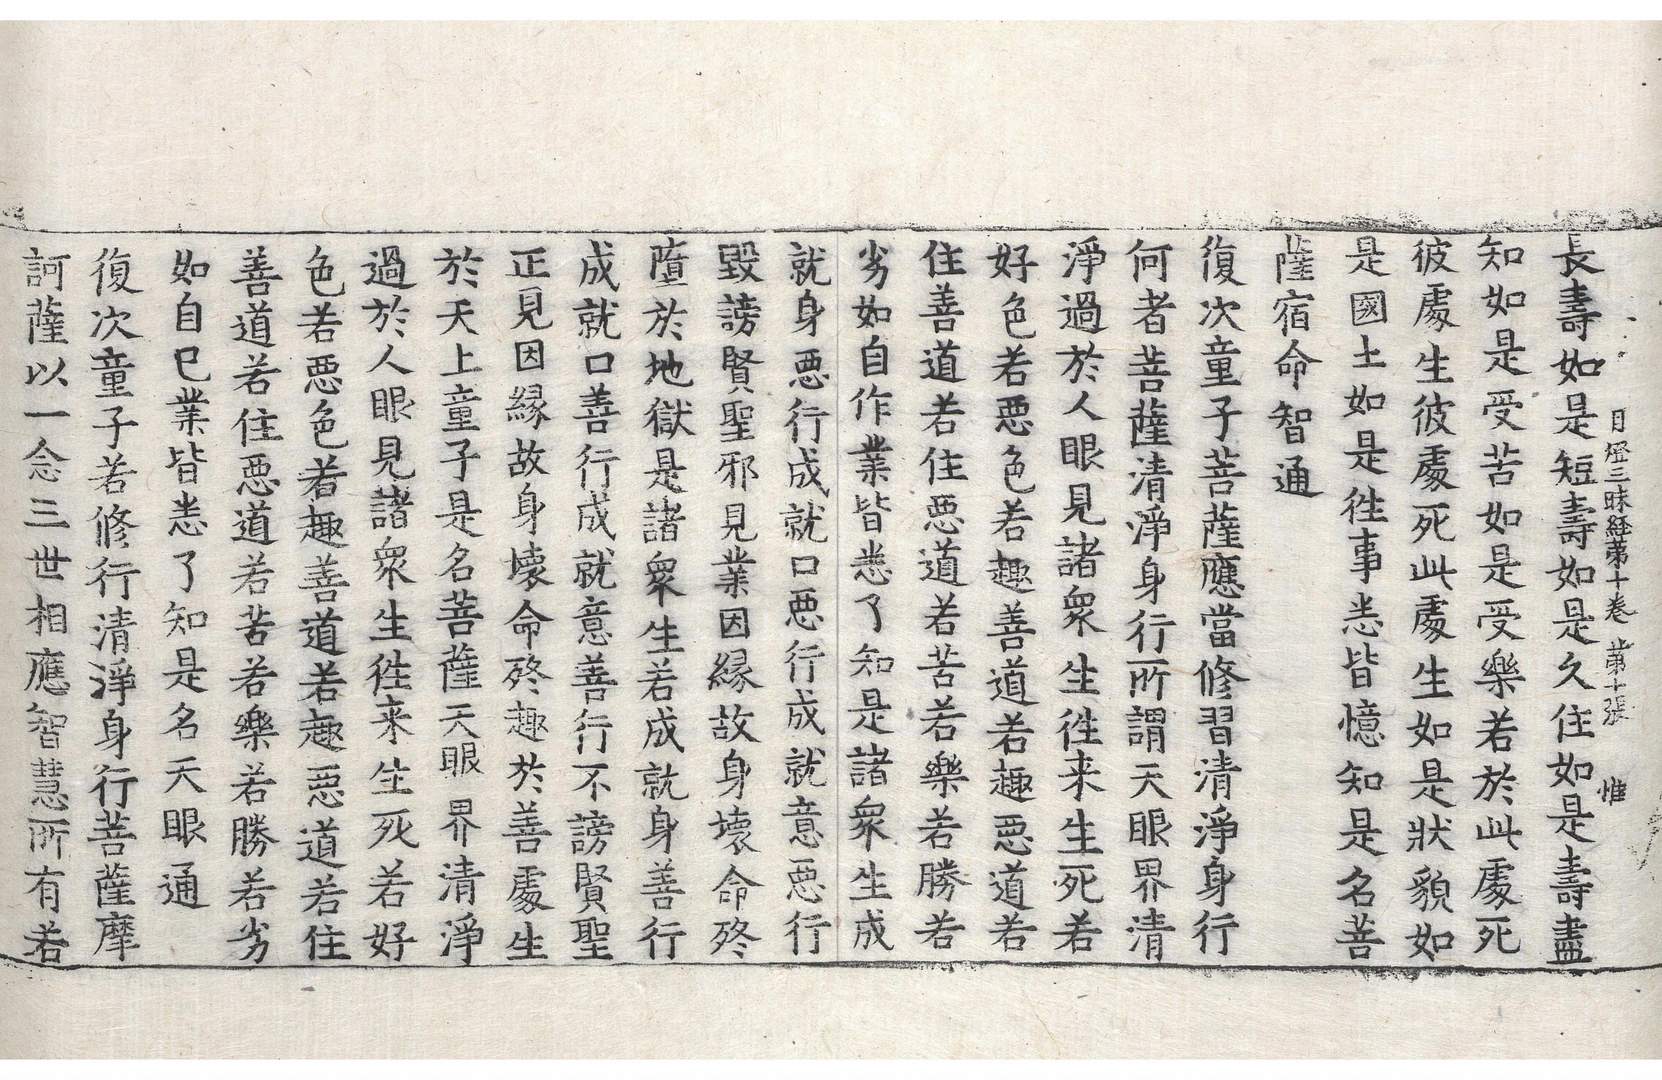 月燈三昧経苐十卷 苐十張 惟
長壽如是短壽如是久住如是壽盡
知如是受苦如是受樂若於此處死
彼處生彼處死此處生如是狀貌如
是國土如是徃事悉皆憶知是名菩
薩宿命智通
復次童子菩薩應當修習清淨身行
何者菩薩清淨身行所謂天眼界清
淨過於人眼見諸衆生徃来生死若
好色若惡色若趣善道若趣惡道若
住善道若住惡道若苦若樂若勝若
劣如自作業皆悉了知是諸衆生成
就身惡行成就口惡行成就意惡行
毀謗賢聖邪見業因緣故身壞命終
墮於地獄是諸衆生若成就身善行
成就口善行成就意善行不謗賢聖
正見因緣故身壞命終趣於善處生
於天上童子是名菩薩天眼界清淨
過於人眼見諸衆生徃来生死若好
色若惡色若趣善道若趣惡道若住
善道若住惡道若苦若樂若勝若劣
如自巳業皆悉了知是名天眼通
復次童子若修行清淨身行菩薩摩
訶薩以一念三世相應智慧所有若